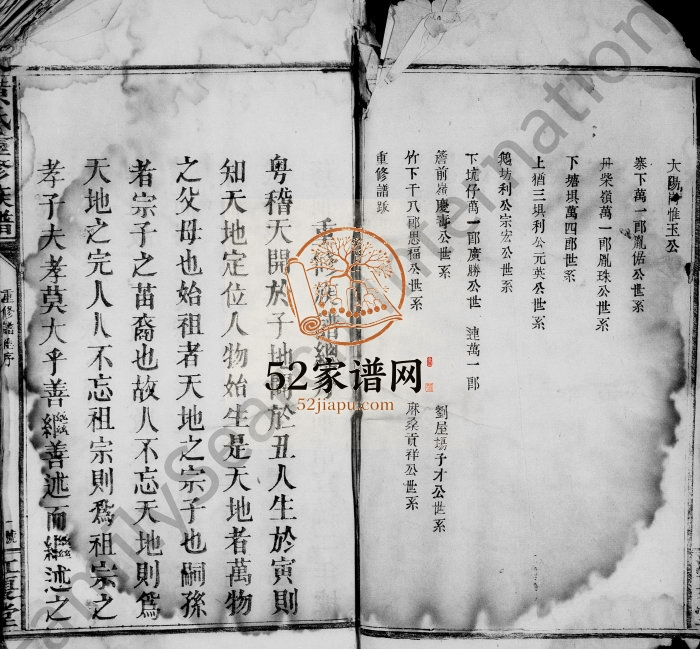 太陽惟玉公
寨下萬一郎胤倨公世系
丹柴嶺萬一郎胤珠公世系
下塘垻萬四郎世系
上猶三垻利公元英公世系
鵝坊利公宗宏公世系
下坑仔萬一郎廣勝公世 漣萬一郎
舊前嶺慶壽公世系 劉屋塲子才公世系
竹下千八郎思福公世系 麻桑貢祥公世系
重修譜跋
重修族譜總
粵稽天開於子地於丑人生於寅則
知天地定位人物始生是天地者萬物
之父母也始祖者天地之宗子也嗣孫
者宗子之苗裔也故人不忘天地則爲
天地之完人人不忘祖宗則爲祖宗之
孝子夫孝莫大乎善繼善述而繼述之
氏重修族譜
重修譜序
一號
江夏堂
52家谱网
52jiapu.com
FamilySearch International